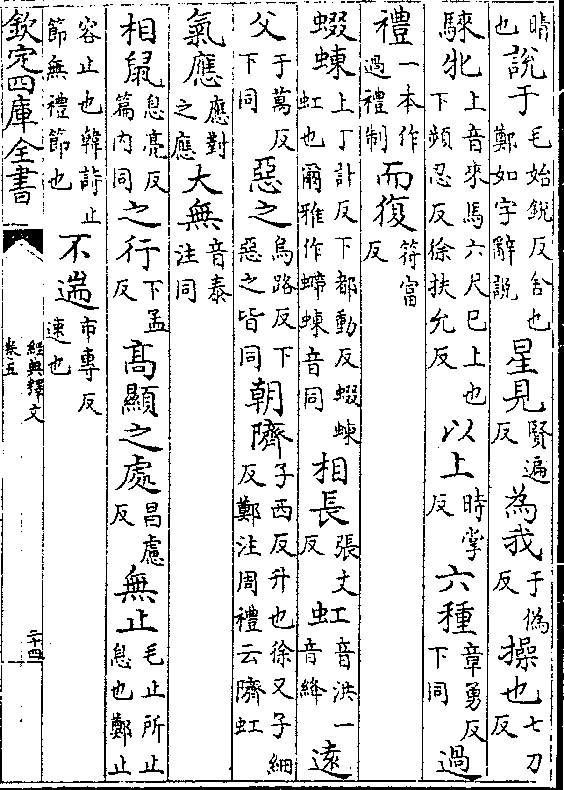 晴也說于毛始銳反舍也鄭如字辭說星見賢遍反為我于偽反操也七刀反
騋牝上音來馬六尺巳上也下頻忍反徐扶允反以上時掌反六種章勇反下同過
禮一本作過禮制而復符富反
蝃蝀上丁計反下都動反蝃蝀虹也爾雅作螮蝀音同相長張丈反虹音洪一音絳遠
父于萬反下同惡之烏路反下惡之皆同朝隮子西反升也徐又子細反鄭注周禮云隮虹
氣應應對之應大無音泰注同
相鼠息亮反篇内同之行下孟反髙顯之處昌慮反無止毛止所止息也鄭止
容止也韓詩止節無禮節也不遄市專反速也
欽定四庫全書
經典釋文
卷五
二十四